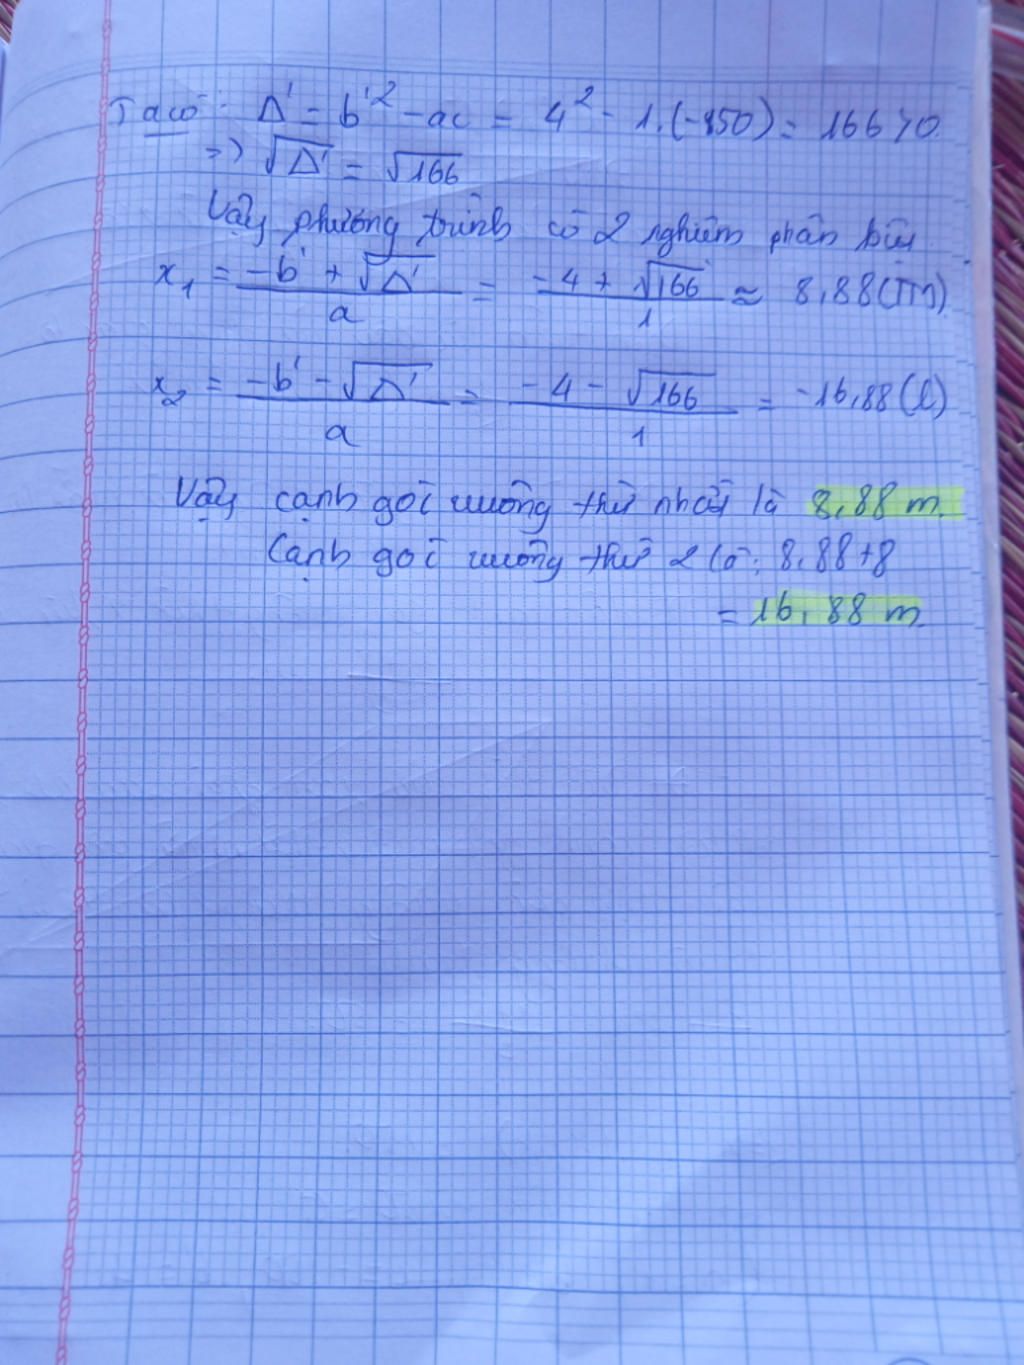 Ta có: Δ' = b'² - ac = 4² - 1.(-150) = 166 > 0.
=> √Δ' = √166
Vậy phương trình có 2 nghiệm phân biệt
x₁ = (-b' + √Δ')/a = (-4 + √166)/1 ≈ 8,88 (TM)
x₂ = (-b' - √Δ')/a = (-4 - √166)/1 = -16,88 (l)
Vậy cạnh góc vuông thứ nhất là 8,88 m.
Cạnh góc vuông thứ 2 là: 8,88+8
= 16,88 m.